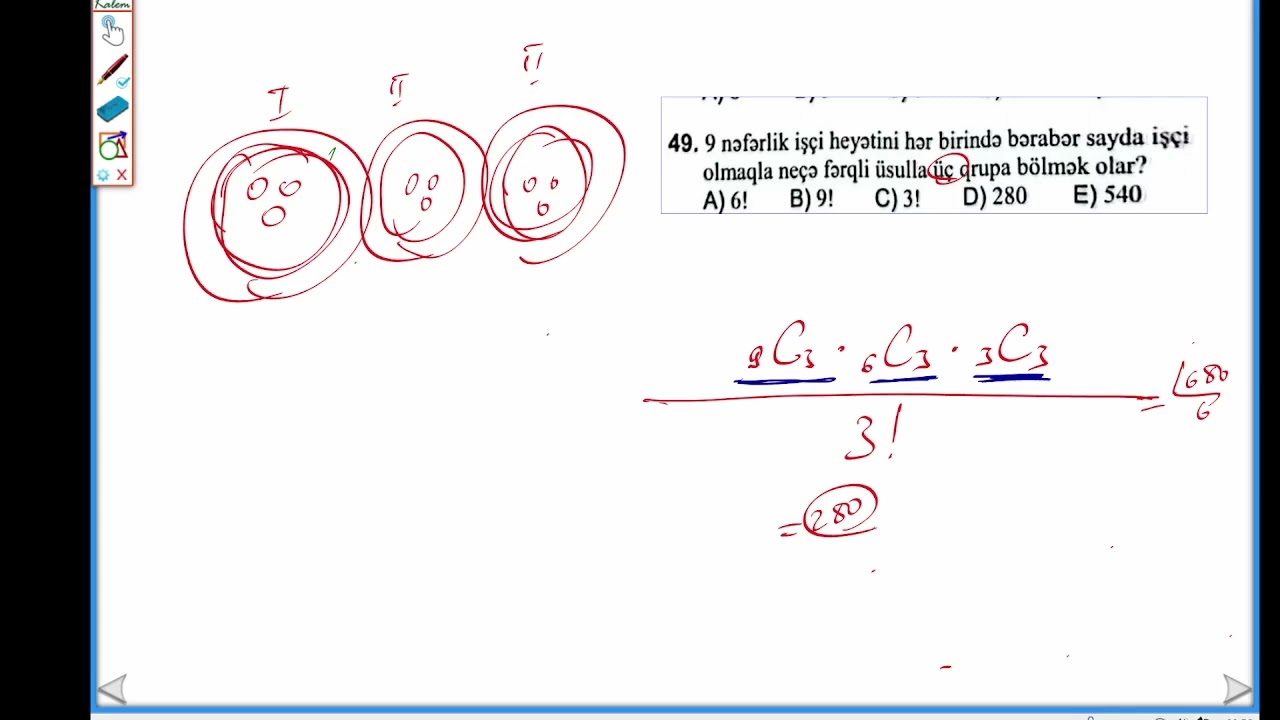 Kalem
I
II
II
49. 9 nəfərlik işçi heyətini hər birində bərabər sayda işçi
olmaqla neçə fərqli üsulla üç qrupa bölmək olar?
A) 6! B) 9! C) 3! D) 280 E) 540
9C3 · 6C3 · 3C3
3!
= 1680
6
= 280